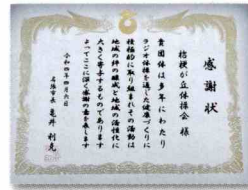 感謝状
桔梗が丘体操会 様
貴団体は多年にわたり
ラジオ体操を通じた健康づくりに
積極的に取り組まれその活動は
地域の絆の醸成と地域の活性化に
大きく寄与するものであります
よってここに深く感謝の意を表します
令和四年四月六日
名張市長 亀井利克